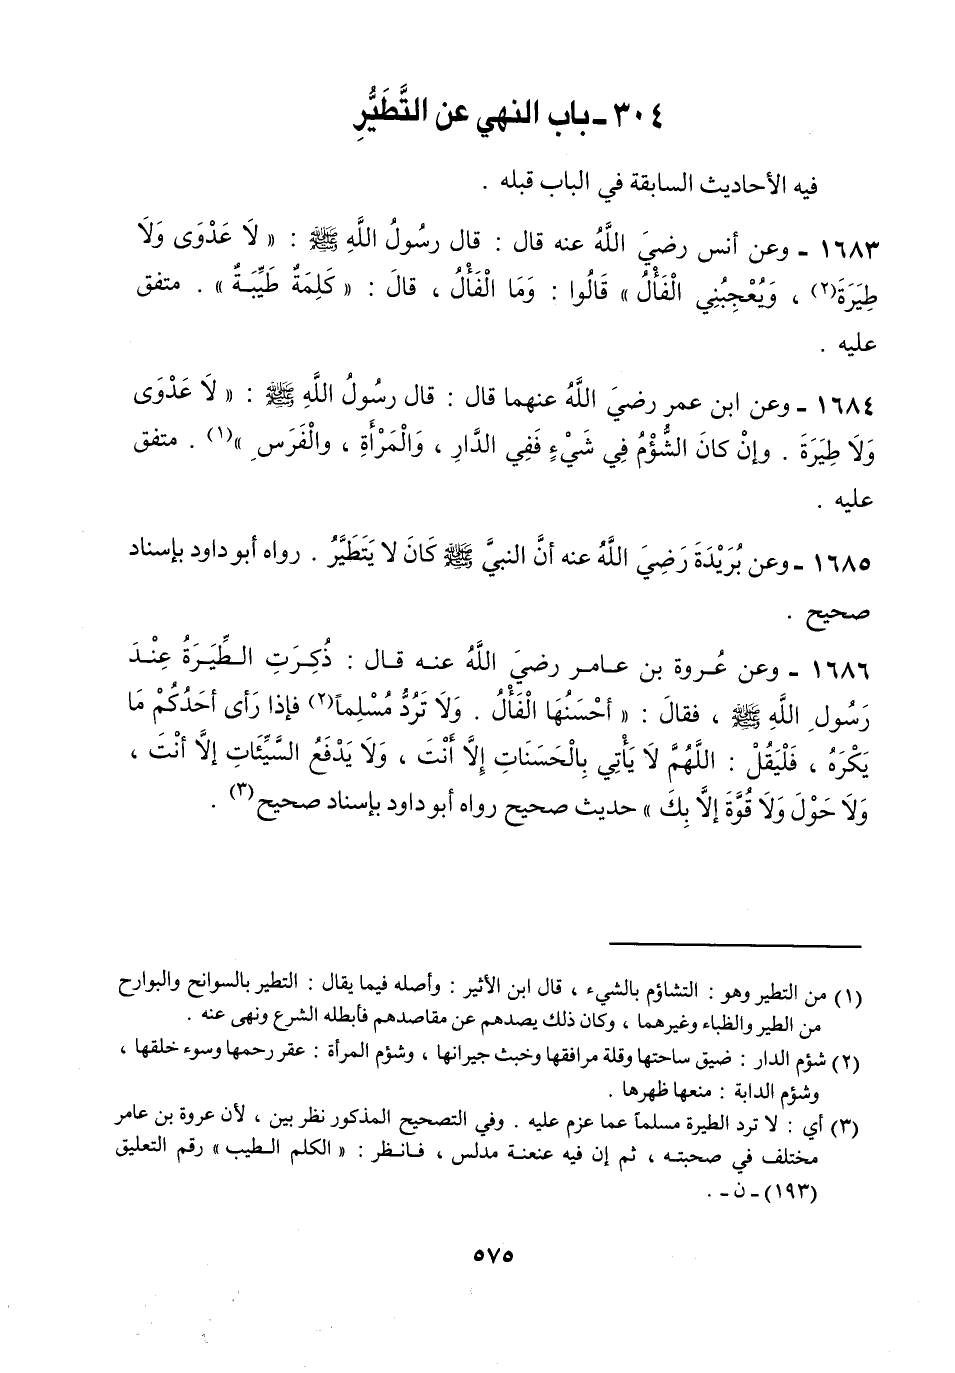 ٣٠٤ ـ باب النهي عن التَّطَيُّرِ
فيه الأحاديث السابقة في الباب قبله .
١٦٨٣ ـ وعن أنس رضيَ اللَّهُ عنه قال : قال رسُولُ اللَّهِ ﷺ : « لَا عَدْوَى وَلَا
طِيَرَةَ(٢) ، وَيُعْجِبُنِي الْفَأْلُ » قَالُوا : وَمَا الْفَأْلُ ، قالَ : « كَلِمَةٌ طَيِّبَةٌ » . متفق
عليه .
١٦٨٤ ـ وعن ابن عمر رضيَ اللَّهُ عنهما قال : قال رسُولُ اللَّهِ ﷺ : « لَا عَدْوَى
وَلَا طِيَرَةَ . وإنْ كانَ الشُّؤْمُ فِي شَيْءٍ فَفِي الدَّارِ ، وَالْمَرْأَةِ ، والْفَرَسِ »(١) . متفق
عليه .
١٦٨٥ ـ وعن بُرَيْدَةَ رَضِيَ اللَّهُ عنه أنَّ النبيَّ ﷺ كَانَ لا يَتَطَيَّرُ . رواه أبو داود بإسناد
صحيح .
١٦٨٦ ـ وعن عُروة بن عامر رضيَ اللَّهُ عنه قال : ذُكِرَتِ الطِّيَرَةُ عِنْدَ
رَسُولِ اللَّهِ ﷺ ، فقالَ : « أحْسَنُهَا الْفَأْلُ . وَلَا تَرُدُّ مُسْلِماً(٢) فإذا رَأى أحَدُكُمْ مَا
يَكْرَهُ ، فَلْيَقُلْ : اللَّهُمَّ لَا يَأْتِي بِالْحَسَنَاتِ إِلَّا أَنْتَ ، وَلَا يَدْفَعُ السَّيِّئَاتِ إلَّا أنْتَ ،
وَلَا حَوْلَ وَلَا قُوَّةَ إلَّا بِكَ » حديث صحيح رواه أبو داود بإسناد صحيح(٣) .
(١) من التطير وهو : التشاؤم بالشيء ، قال ابن الأثير : وأصله فيما يقال : التطير بالسوانح والبوارح
من الطير والظباء وغيرهما ، وكان ذلك يصدهم عن مقاصدهم فأبطله الشرع ونهى عنه .
(٢) شؤم الدار : ضيق ساحتها وقلة مرافقها وخبث جيرانها ، وشؤم المرأة : عقر رحمها وسوء خلقها ،
وشؤم الدابة : منعها ظهرها .
(٣) أي : لا ترد الطيرة مسلماً عما عزم عليه . وفي التصحيح المذكور نظر بين ، لأن عروة بن عامر
مختلف في صحبته ، ثم إن فيه عنعنة مدلس ، فانظر : « الكلم الطيب » رقم التعليق
(١٩٣) ـ ن ـ .
٥٧٥